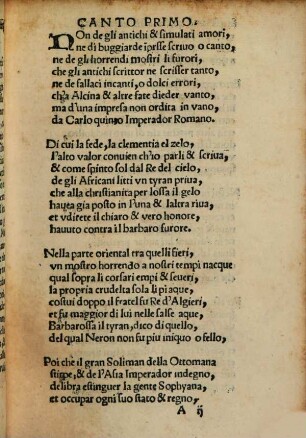 CANTO PRIMO.
NOn de gli antichi & simulati amori,
ne di buggiarde iprese scriuo o canto,
ne de gli horrendi mostri li furori,
che gli antichi scrittor ne scrisser tanto,
ne de fallaci incanti, o dolci errori,
ch'a Alcina & altre fate dieder vanto,
ma d'una impresa non ordita in vano,
da Carlo quinto Imperador Romano.
Di cui la fede, la clementia el zelo,
l'alto valor conuien ch'io parli & scriua,
& come spinto sol dal Re del cielo,
de gli Africani litti vn tyran priua,
che alla christianita per lossa il gelo
hauea gia posto in l'una & laltra riua,
et vdirete il chiaro & vero honore,
hauuto contra il barbaro furore.
Nella parte oriental tra quelli fieri,
vn mostro horrendo a nostri tempi nacque
qual sopra li corsari empi & seueri,
la propria crudelta sola li piaque,
costui doppo il fratel fu Re d'Algieri,
et fu maggior di lui nelle salse aque,
Barbarossa il tyran, dico di quello,
del qual Neron non fu piu iniquo o fello,
Poi chè il gran Soliman della Ottomana
stirpe, & de l'Asia Imperador indegno,
delibra estinguer la gente Sophyana,
et occupar ogni suo stato & regno,
A ij